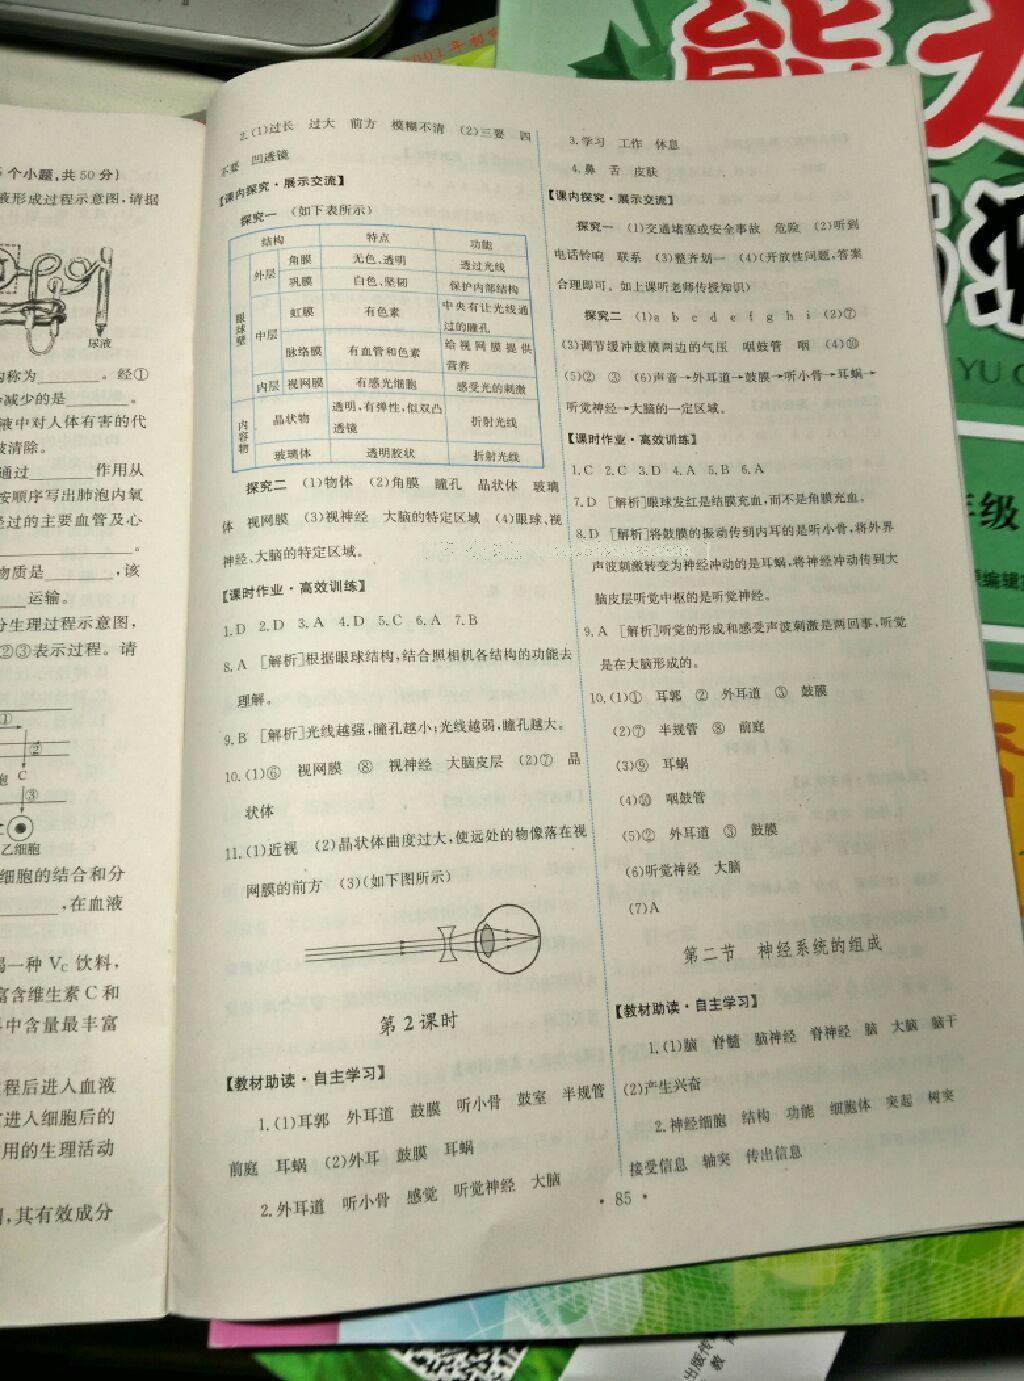 5个小题,共50分)
液形成过程示意图,请据
尿液
称为________。经①
减少的是________。
液中对人体有害的代
清除。
通过________作用从
按顺序写出肺泡内氧
经过的主要血管及心
________。
物质是________,该
____运输。
生理过程示意图,
②③表示过程。请
①
②
C
③
乙细胞
细胞的结合和分
________,在血液
一种 VC 饮料,
富含维生素C和
中含量最丰富
程后进入血液
进入细胞后的
用的生理活动
,其有效成分
2.(1)过长 过大 前方 模糊不清 (2)三要 四
不要 凹透镜
【课内探究·展示交流】
探究一 (如下表所示)
结构 特点 功能
眼球壁 外层 角膜 无色、透明 透过光线
巩膜 白色、坚韧 保护内部结构
中层 虹膜 有色素 中央有让光线通
过的瞳孔
脉络膜 有血管和色素 给视网膜提供
营养
内层 视网膜 有感光细胞 感受光的刺激
内容物 晶状物 透明,有弹性,似双凸
透镜 折射光线
玻璃体 透明胶状 折射光线
探究二 (1)物体 (2)角膜 瞳孔 晶状体 玻璃
体 视网膜 (3)视神经 大脑的特定区域 (4)眼球、视
神经、大脑的特定区域。
【课时作业·高效训练】
1.D 2.D 3.A 4.D 5.C 6.A 7.B
8.A [解析]根据眼球结构,结合照相机各结构的功能去
理解。
9.B [解析]光线越强,瞳孔越小;光线越弱,瞳孔越大。
10.(1)⑥ 视网膜 ⑧ 视神经 大脑皮层 (2)⑦ 晶
状体
11.(1)近视 (2)晶状体曲度过大,使远处的物像落在视
网膜的前方 (3)(如下图所示)
第2课时
【教材助读·自主学习】
1.(1)耳郭 外耳道 鼓膜 听小骨 鼓室 半规管
前庭 耳蜗 (2)外耳 鼓膜 耳蜗
2.外耳道 听小骨 感觉 听觉神经 大脑
3.学习 工作 休息
4.鼻 舌 皮肤
【课内探究·展示交流】
探究一 (1)交通堵塞或安全事故 危险 (2)听到
电话铃响 联系 (3)整齐划一 (4)(开放性问题,答案
合理即可。如上课听老师传授知识)
探究二 (1)a b c d e f g h i (2)⑦
(3)调节缓冲鼓膜两边的气压 咽鼓管 咽 (4)⑩
(5)② ③ (6)声音→外耳道→鼓膜→听小骨→耳蜗→
听觉神经→大脑的一定区域。
【课时作业·高效训练】
1.C 2.C 3.D 4.A 5.B 6.A
7.D [解析]眼球发红是结膜充血,而不是角膜充血。
8.D [解析]将鼓膜的振动传到内耳的是听小骨,将外界
声波刺激转变为神经冲动的是耳蜗,将神经冲动传到大
脑皮层听觉中枢的是听觉神经。
9.A [解析]听觉的形成和感受声波刺激是两回事,听觉
是在大脑形成的。
10.(1)① 耳郭 ② 外耳道 ③ 鼓膜
(2)⑦ 半规管 ⑧ 前庭
(3)⑨ 耳蜗
(4)⑩ 咽鼓管
(5)② 外耳道 ③ 鼓膜
(6)听觉神经 大脑
(7)A
第二节 神经系统的组成
【教材助读·自主学习】
1.(1)脑 脊髓 脑神经 脊神经 脑 大脑 脑干
(2)产生兴奋
2.神经细胞 结构 功能 细胞体 突起 树突
接受信息 轴突 传出信息
·85·
熊
YU C
年级
编辑
出版传
教